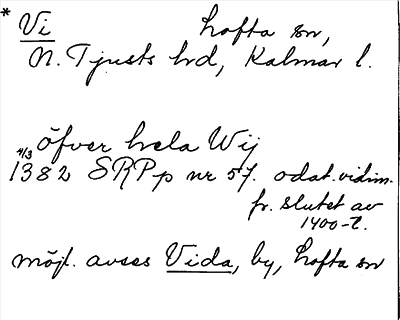 * Vi Lofta sn,
N. Tjusts hd, Kalmar l.
öfver hela Wij
4/3
1382 SRPp nr 57. odat. vidim.
fr. slutet av
1400-t.
möjl. avses Vida, by, Lofta sn